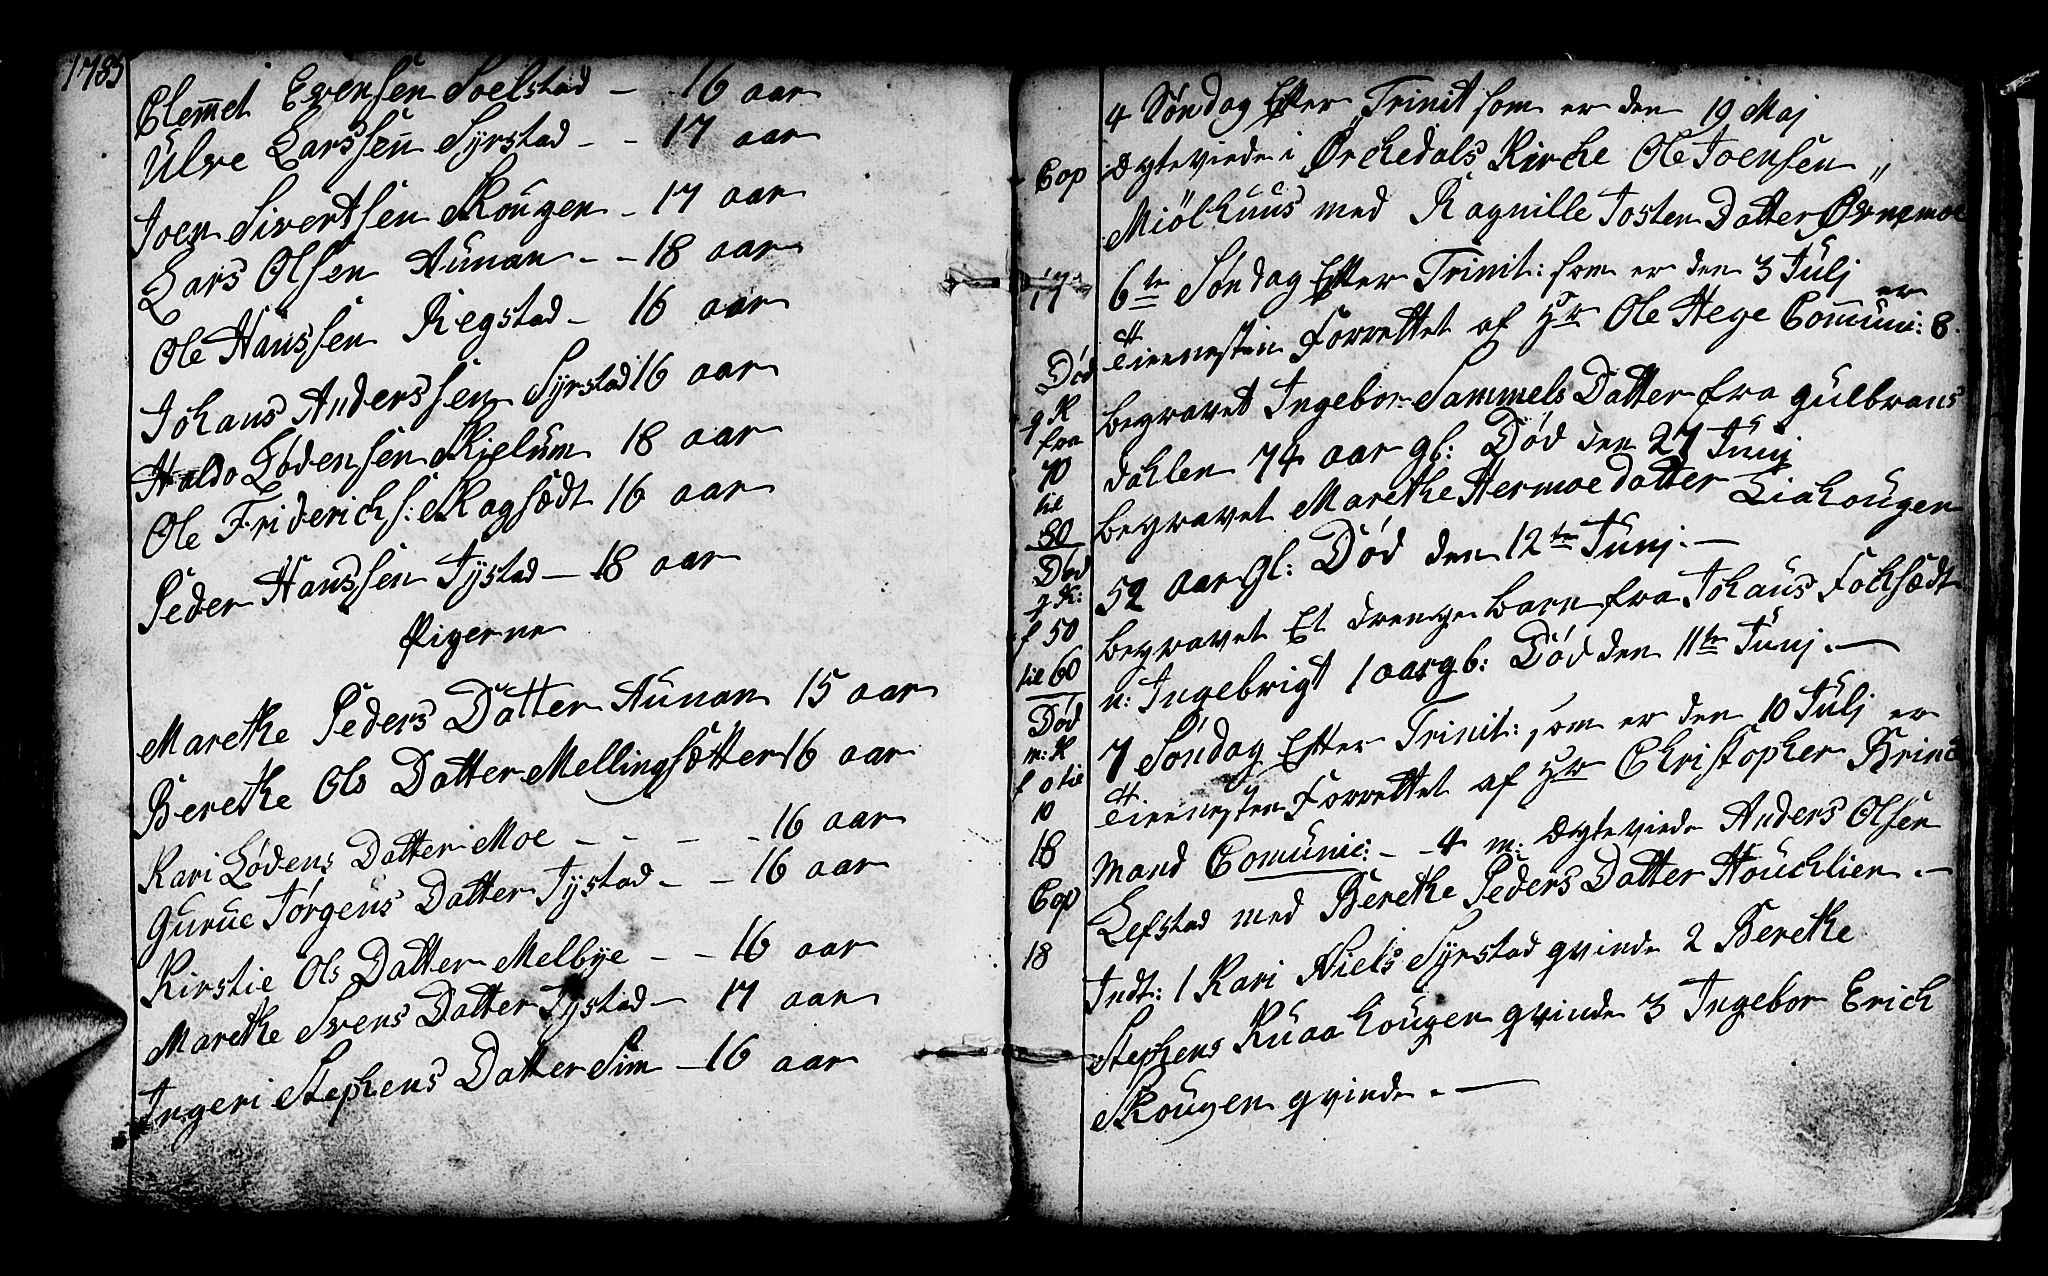 1785
Clem̅et Evensen Soelstad – 16 aar
Ulve Larssen̅ Syrstad – – 17 aar
Joen Sivertsen Skougen – 17 aar
Lars Olsen Aunan – – 18 aar
Ole Hanssen Regstad – 16 aar
Johans Anderssen Syrstad 16 aar
Haldo Lødensen Skielum 18 aar
Ole Friderichs: Ragsædt 16 aar
Peder Hanssen Tystad – 18 aar
Pigerne
Marethe Peders Datter Aunan 15 aar
Berethe Ols Datter Mellingsætter 16 aar
Kari Lødens Datter Moe – – – – 16 aar
Gurue Jørgens Datter Tystad – – 16 aar
Kirstie Ols Datter Melbye – – 16 aar
Marethe Svens Datter Tystad – 17 aar
Ingeri Stephens Datter Sim – 16 aar
4 Søndag Efter Trinit som er den 19 Maj
Cop ægteviede i Ørchedals Kirche Ole Joensen
Miølhuus med Ragnille Josten Datter Øvremoe
17 6te Søndag Efter Trinit: som er den 3 Julj er
Tieenesten Forrettet af Hr Ole Hege Com̅uni: 8.
Død
g K begravet Ingebor Sammels Datter fra gulbrans
fra
70 dahlen 74 aar gl: Død den 27 Junj
til
80 begravet Marethe Hermoedatter Liahougen
Død
g K: 52 aar gl: Død den 12te Junj. –
f 50 begravet Et drenge barn fra Johans Fohsædt
til 60 n: Ingebrigt 1 aar gl: Død den 11te Junj. –
Død
m: K 7 Søndag Efter Trinit: som er den 10 Julj er
f 0 til
10 Tieenesten Forrettet af Hr Christopher Brinc
18 mand Comunic: – – 4 m: ægteviede Anders Olsen
Cop Lefstad med Berethe Peders Datter Houchlien. –
18 Indt: 1 Kari Niels Syrstad qvinde 2 Berethe
Stephens Ruaahougen qvinde 3 Ingebor Erich
Skougen qvinde. –